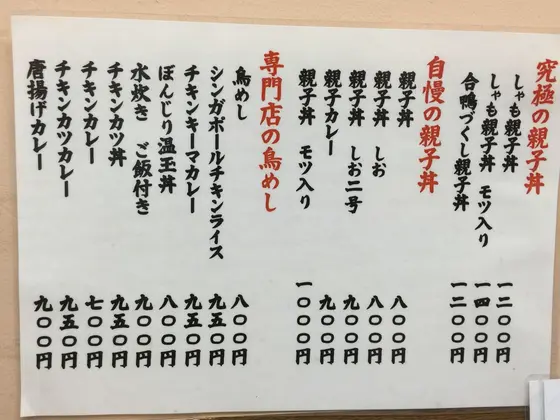 究極の親子丼
しゃも親子丼 一二〇〇円
しゃも親子丼 モツ入り 一四〇〇円
合鴨づくし親子丼 一二〇〇円
自慢の親子丼
親子丼 八〇〇円
親子丼 しお 八〇〇円
親子丼 しお二号 九〇〇円
親子カレー丼 九〇〇円
親子丼 モツ入り 一〇〇〇円
専門店の鳥めし
鳥めし 八〇〇円
シンガポールチキンライス 九五〇円
チキンキーマカレー 九五〇円
ぼんじり温玉丼 八〇〇円
水炊き ご飯付き 九〇〇円
チキンカツ丼 九五〇円
チキンカレー 七〇〇円
チキンカツカレー 九五〇円
唐揚げカレー 九〇〇円